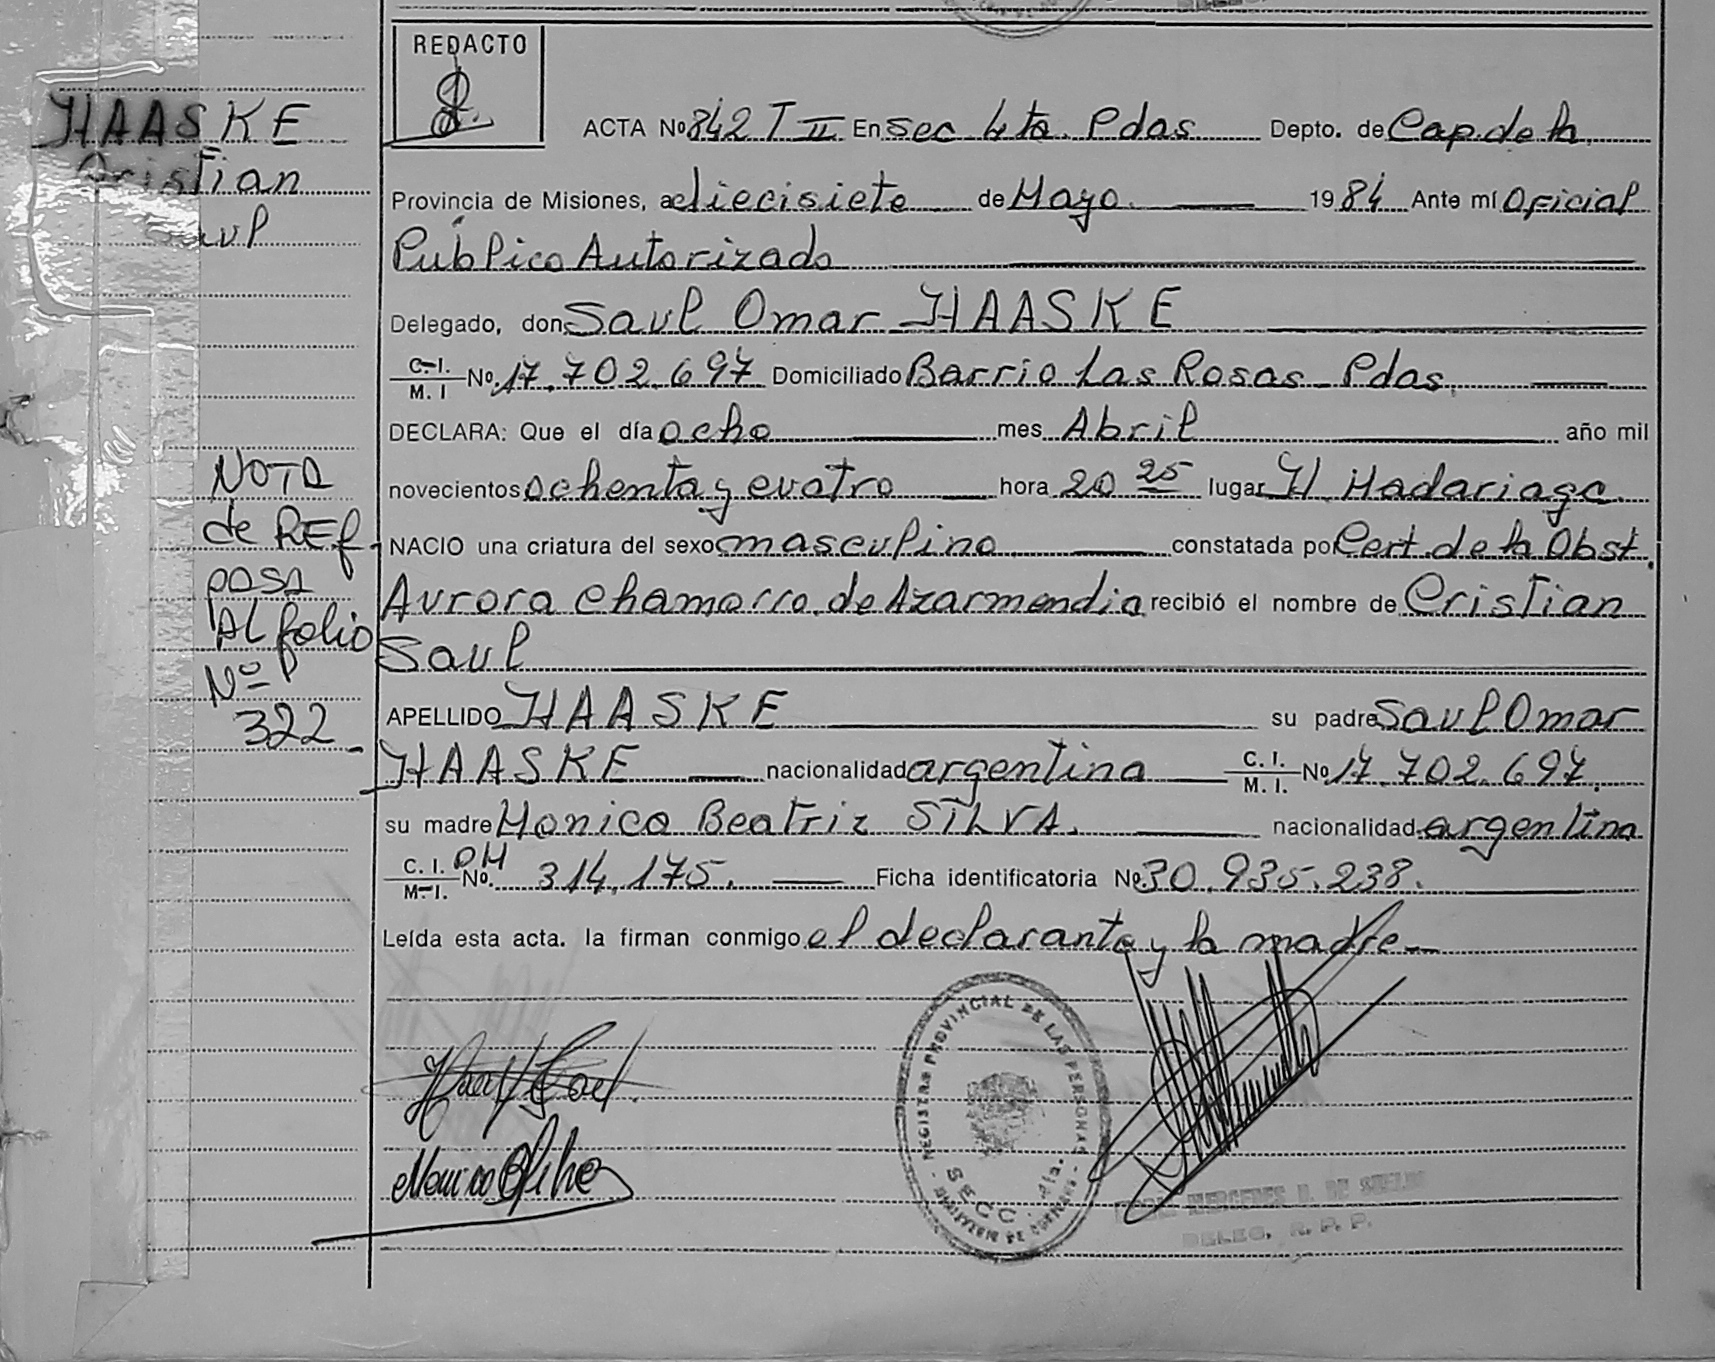 REDACTO
HAASKE
Cristian
Saul
ACTA Nº 842 T II En Sec 4ta. Pdas Depto. de Cap. de la
Provincia de Misiones, a diecisiete de Mayo. 1984 Ante mí Oficial
Público Autorizado
Delegado, don Saul Omar HAASKE
C. I. M. I No. 17.702.697 Domiciliado Barrio Las Rosas - Pdas.
DECLARA: Que el día ocho mes Abril año mil
novecientos ochenta y cuatro hora 20 25 lugar H. Madariaga
NACIO una criatura del sexo masculino constatada por Cert. de la Obst.
Aurora Chamorro de Azarmendia recibió el nombre de Cristian
Saul
APELLIDO HAASKE su padre Saul Omar
HAASKE nacionalidad argentina C. I. M. I. No 17.702.697.
su madre Monica Beatriz SILVA. nacionalidad argentina
C. I. M. I. No. 314.175. Ficha identificatoria No 30.935.238.
Leída esta acta. la firman conmigo el declarante y la madre
NOTA
de REF
pasa
Al folio
Nº
322
REGISTRO PROVINCIAL DE LAS PERSONAS
SECC. 4ta.
DELEG. R. P. P.